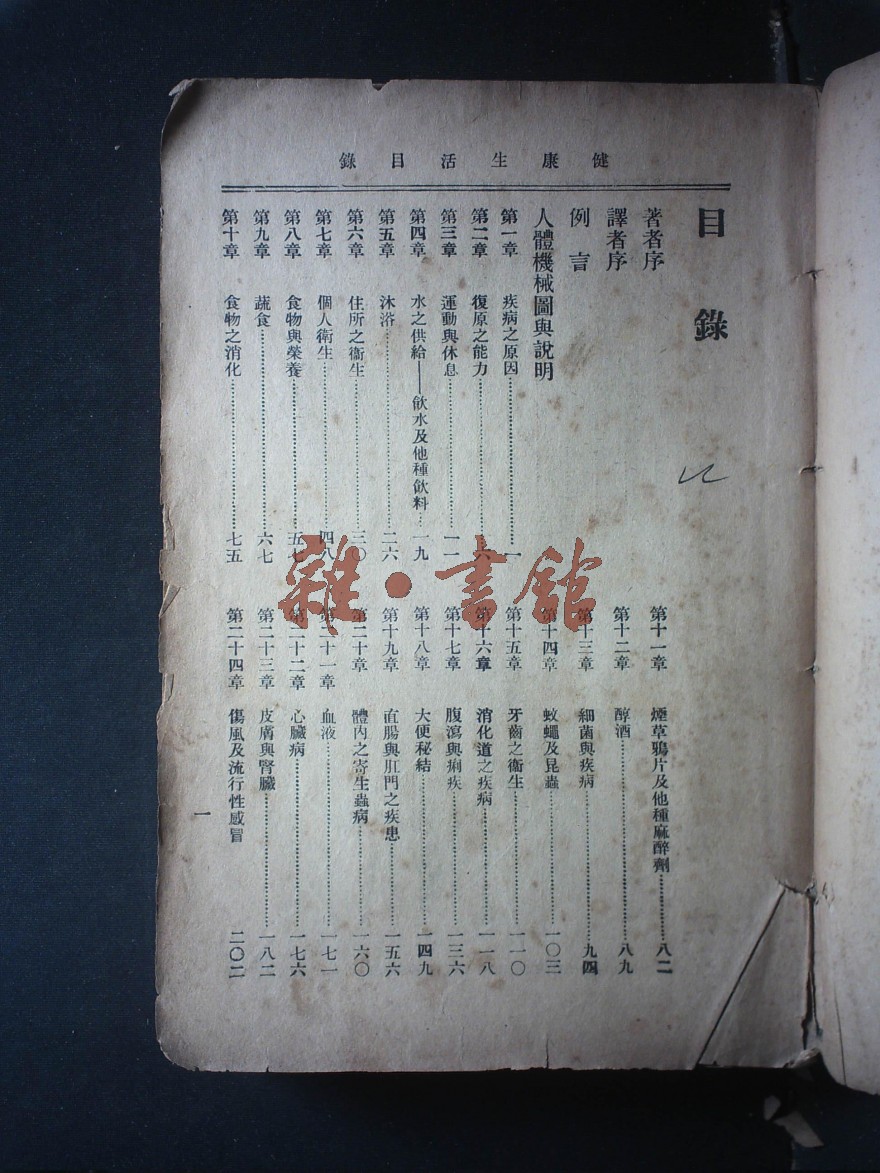 健康生活目錄
目錄
著者序
譯者序
例言
人體機械圖與說明
第一章 疾病之原因…………一
第二章 復原之能力…………六
第三章 運動與休息…………一一
第四章 水之供給——飲水及他種飲料…一九
第五章 沐浴…………二六
第六章 住所之衞生…………三〇
第七章 個人衞生…………四八
第八章 食物與榮養…………五七
第九章 蔬食…………六七
第十章 食物之消化…………七五
第十一章 煙草鴉片及他種麻醉劑…………八二
第十二章 醇酒…………八九
第十三章 細菌與疾病…………九四
第十四章 蚊蠅及昆蟲…………一〇三
第十五章 牙齒之衞生…………一一〇
第十六章 消化道之疾病…………一一八
第十七章 腹瀉與痢疾…………一三六
第十八章 大便秘結…………一四九
第十九章 直腸與肛門之疾患…………一五六
第二十章 體內之寄生蟲病…………一六〇
第二十一章 血液…………一七一
第二十二章 心臟病…………一七六
第二十三章 皮膚與腎臟…………一八二
第二十四章 傷風及流行性感冒…………二〇二
一
雜·書館